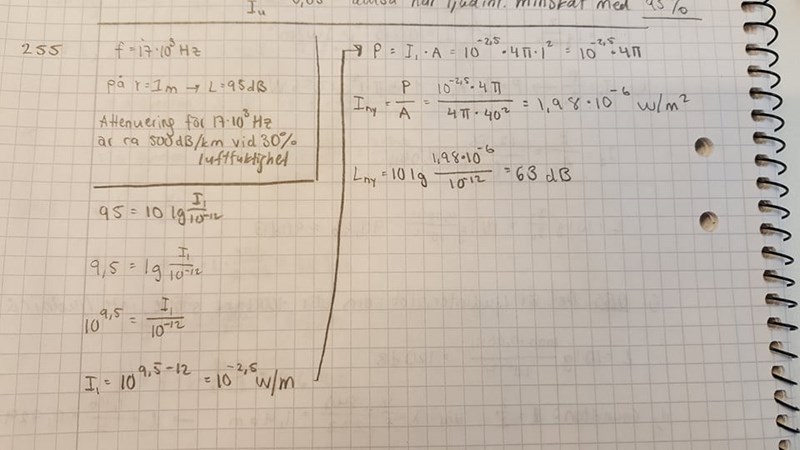 Iu
ljudint. minskat med 95%
255
f = 17·10³ Hz
på r = 1m → L = 95 dB
Attenuering för 17·10³ Hz
är ca 500 dB/km vid 30%
luftfuktighet
95 = 10 lg I₁/10⁻¹²
9,5 = lg I₁/10⁻¹²
10^9,5 = I₁/10⁻¹²
I₁ = 10^9,5-12 = 10^-2,5 W/m
P = I₁ · A = 10^-2,5 · 4π · 1² = 10^-2,5 · 4π
Iny = P/A = 10^-2,5 · 4π / 4π · 40² = 1,98 · 10⁻⁶ W/m²
Lny = 10 lg 1,98·10⁻⁶/10⁻¹² = 63 dB